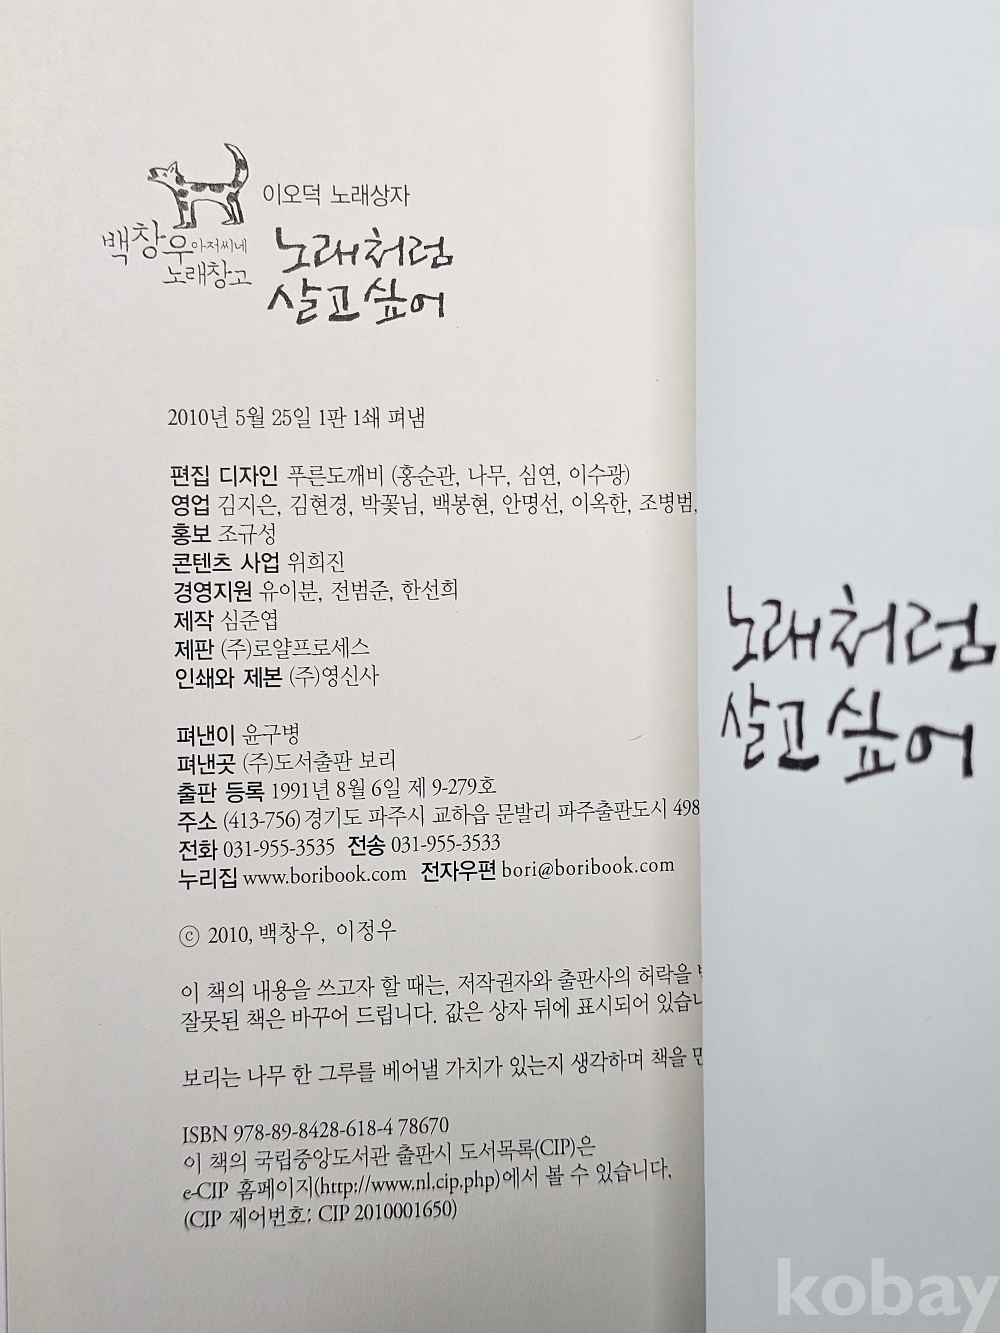 이오덕 노래상자
백창우아저씨네
노래창고
노래처럼
살고 싶어
2010년 5월 25일 1판 1쇄 펴냄
편집 디자인 푸른도깨비 (홍순관, 나무, 심연, 이수광)
영업 김지은, 김현경, 박꽃님, 백봉현, 안명선, 이옥한, 조병범,
홍보 조규성
콘텐츠 사업 위희진
경영지원 유이분, 전범준, 한선희
제작 심준엽
제판 (주)로얄프로세스
인쇄와 제본 (주)영신사
펴낸이 윤구병
펴낸곳 (주)도서출판 보리
출판 등록 1991년 8월 6일 제 9-279호
주소 (413-756) 경기도 파주시 교하읍 문발리 파주출판도시 498
전화 031-955-3535 전송 031-955-3533
누리집 www.boribook.com 전자우편 bori@boribook.com
ⓒ 2010, 백창우, 이정우
이 책의 내용을 쓰고자 할 때는, 저작권자와 출판사의 허락을
잘못된 책은 바꾸어 드립니다. 값은 상자 뒤에 표시되어
보리는 나무 한 그루를 베어낼 가치가 있는지 생각하며 책을
ISBN 978-89-8428-618-4 78670
이 책의 국립중앙도서관 출판시 도서목록(CIP)은
e-CIP 홈페이지(http://www.nl.cip.php)에서 볼 수 있습니다.
(CIP 제어번호: CIP 2010001650)
노래처럼
살고 싶어
kobay